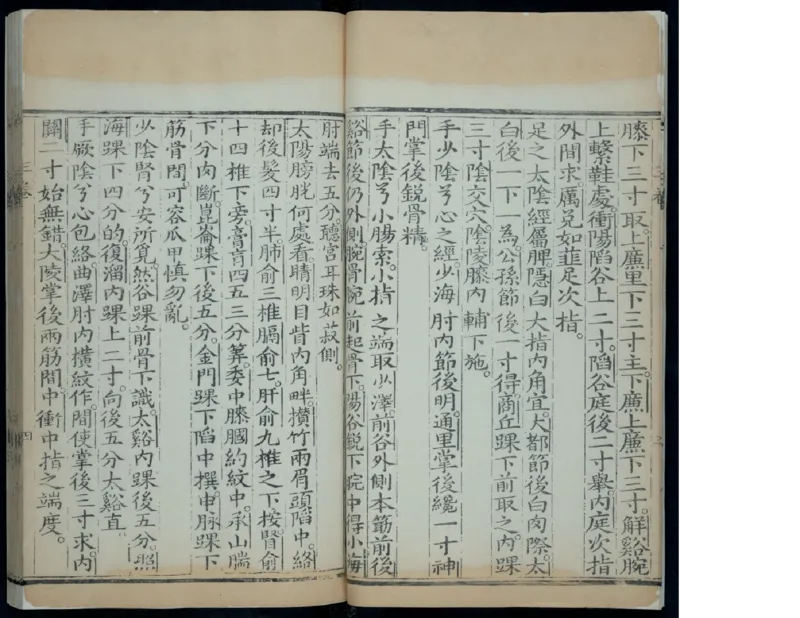 膝下三寸取。上廉里下三寸主。下廉上廉下三寸。解谿腕
上繫鞋處衝陽陷谷上二寸。陷谷庭後二寸舉。內庭次指
外間求。厲兌如韭足次指。
足之太陰經屬脾隱白大指內角宜。大都節後白肉際。太
白後一下一為。公孫節後一寸得商丘踝下前取之。內踝
三寸陰交穴陰陵膝內輔下施。
手少陰兮心之經少海肘內節後明。通里掌後纔一寸神
門掌後銳骨精。
手太陰兮小腸索。小指之端取少澤。前谷外側本節前後
谿節後仍外側腕骨腕前起骨下。陽谷銳下腕中得小海
肘端去五分。聽宮耳珠如菽側。
太陽膀胱何處看。睛明目眥內角畔。攢竹兩眉頭陷中。絡
却後髮四寸半。肺俞三椎膈俞七。肝俞九椎之下按。腎俞
十四椎下旁。膏肓四五三分算。委中膝膕約紋中。承山腨
下分肉斷。崑崙踝下後五分。金門踝下陷中撰。申脉踝下
筋骨間。可容爪甲慎勿亂。
少陰腎兮安所覓然谷踝前骨下識。太谿內踝後五分。照
海踝下四分的。復溜內踝上二寸。向後五分太谿直
手厥陰兮心包絡曲澤肘內橫紋作。間使掌後三寸求。內
關二寸始無錯。大陵掌後兩筋間。中衝中指之端度。
三卷
四